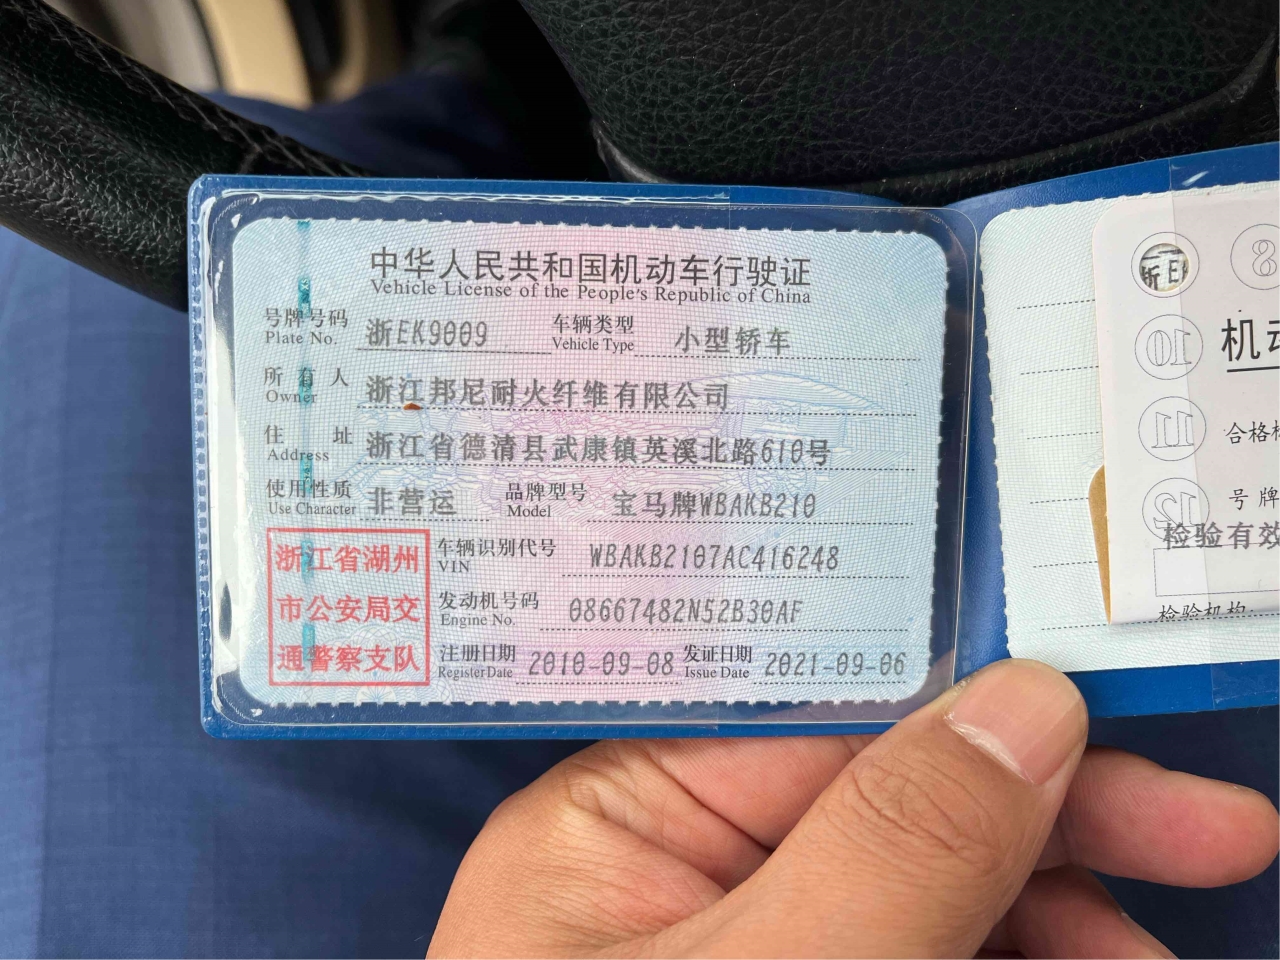 中华人民共和国机动车行驶证
Vehicle License of the People's Republic of China
号牌号码 浙EK9009 车辆类型 小型轿车
Plate No. Vehicle Type
所有人 浙江邦尼耐火纤维有限公司
Owner
住址 浙江省德清县武康镇英溪北路610号
Address
使用性质 非营运 品牌型号 宝马牌WBAKB210
Use Character Model
浙江省湖州
市公安局交
通警察支队
车辆识别代号 WBAKB2107AC416248
VIN
发动机号码 08667482N52B30AF
Engine No.
注册日期 2010-09-08 发证日期 2021-09-06
Register Date Issue Date
浙E
8
10
机动
11
合格
12
号牌
检验有效
检验机构: